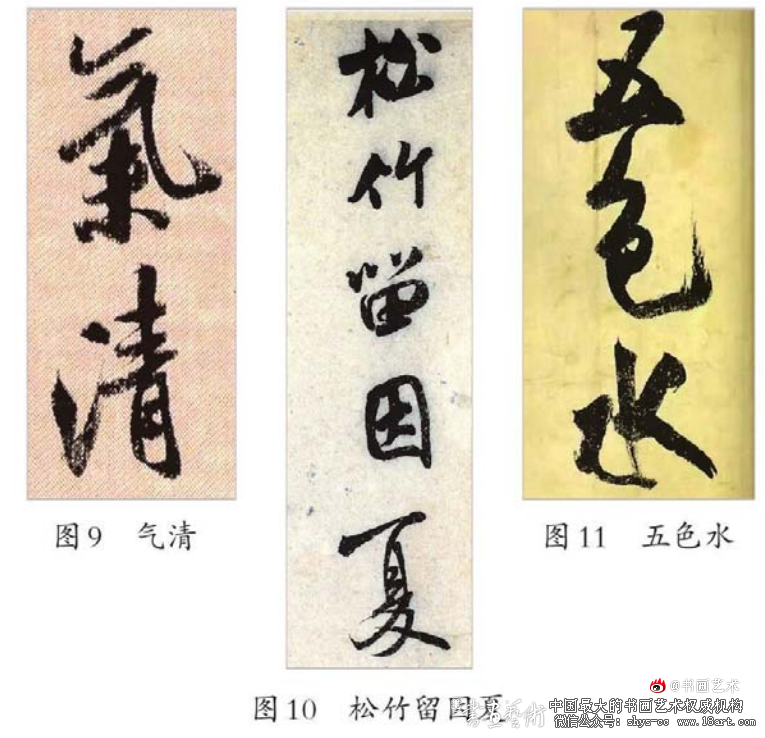 氣清
松竹留因夏
五色水
图9 气清
图11 五色水
图10 松竹留因夏
@书画艺术
中国最大的书画艺术权威机构
微信公众号：shys-cc www.18art.com